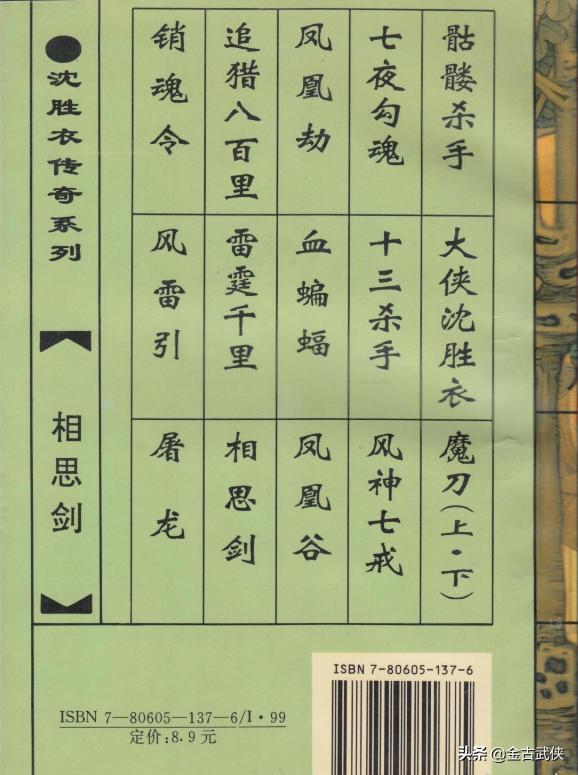 骷髅杀手
七夜勾魂
凤凰劫
追猎八百里
销魂令
大侠沈胜衣
十三杀手
血蝙蝠
雷霆千里
风雷引
魔刀(上·下)
风神七戒
凤凰谷
相思剑
屠龙
●沈胜衣传奇系列
【相思剑】
ISBN 7-80605-137-6
ISBN 7—80605—137—6/I·99
定价:8.9元
头条 @金古武侠